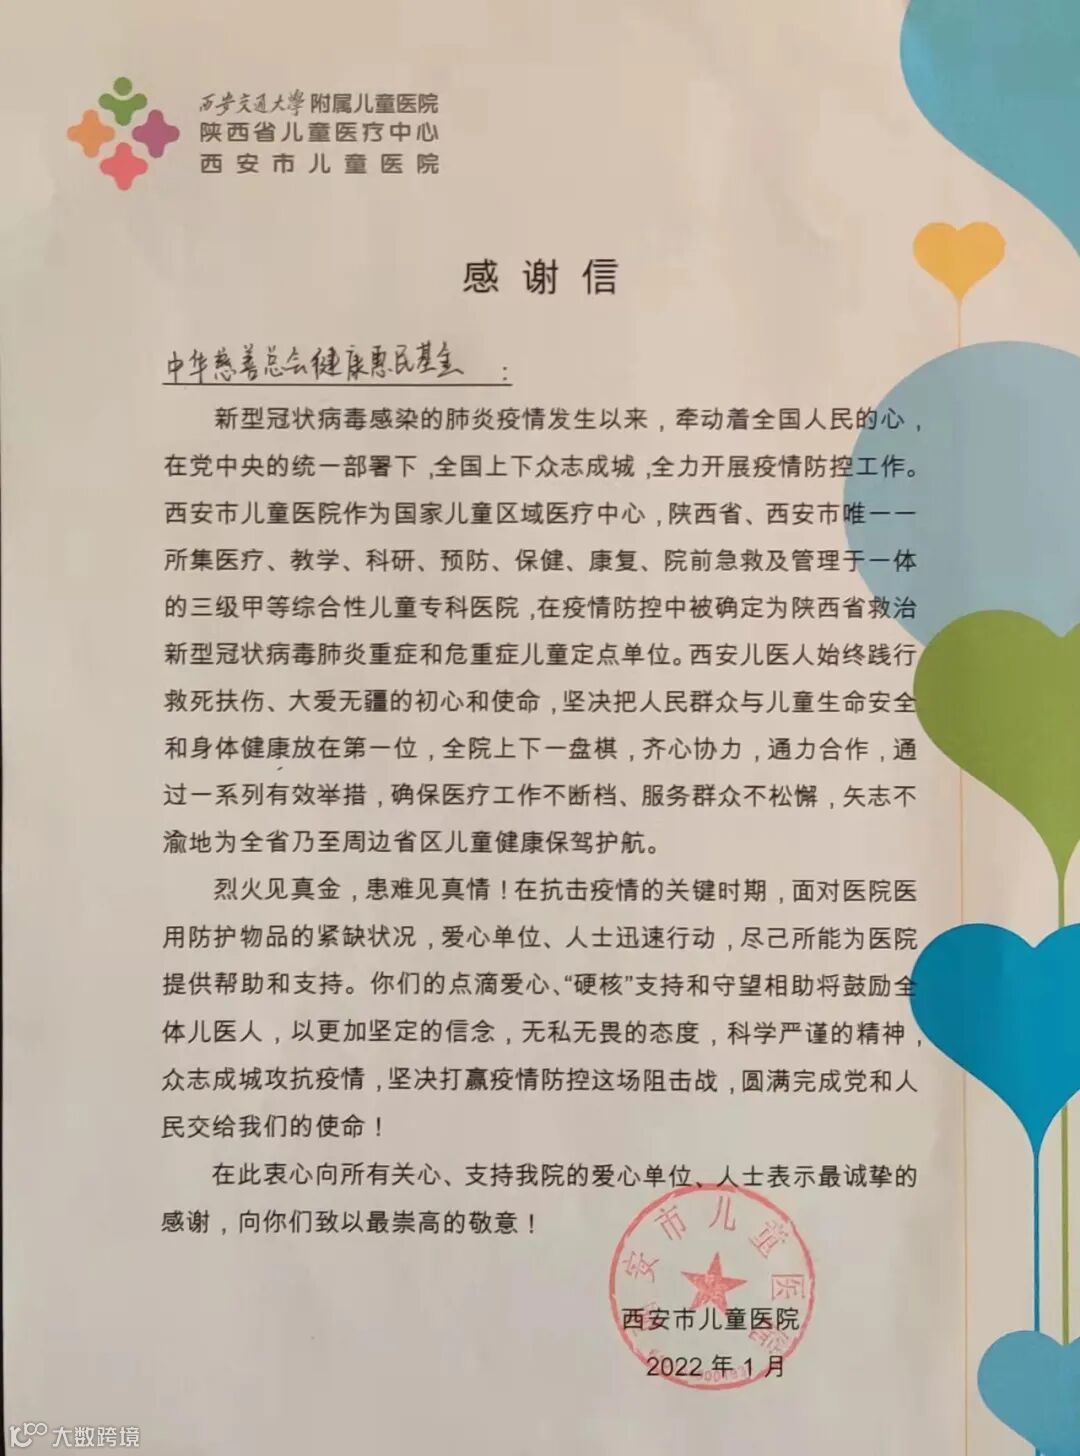 西安交通大学附属儿童医院
陕西省儿童医疗中心
西安市儿童医院
感谢信
中华慈善总会健康惠民基金：
新型冠状病毒感染的肺炎疫情发生以来，牵动着全国人民的心，
在党中央的统一部署下，全国上下众志成城，全力开展疫情防控工作。
西安市儿童医院作为国家儿童区域医疗中心，陕西省、西安市唯一一
所集医疗、教学、科研、预防、保健、康复、院前急救及管理于一体
的三级甲等综合性儿童专科医院，在疫情防控中被确定为陕西省救治
新型冠状病毒肺炎重症和危重症儿童定点单位。西安儿医人始终践行
救死扶伤、大爱无疆的初心和使命，坚决把人民群众与儿童生命安全
和身体健康放在第一位，全院上下一盘棋，齐心协力，通力合作，通
过一系列有效举措，确保医疗工作不断档、服务群众不松懈，矢志不
渝地为全省乃至周边省区儿童健康保驾护航。
烈火见真金，患难见真情！在抗击疫情的关键时期，面对医院医
用防护物品的紧缺状况，爱心单位、人士迅速行动，尽己所能为医院
提供帮助和支持。你们的点滴爱心、“硬核”支持和守望相助将鼓励全
体儿医人，以更加坚定的信念，无私无畏的态度，科学严谨的精神，
众志成城攻抗疫情，坚决打赢疫情防控这场阻击战，圆满完成党和人
民交给我们的使命！
在此衷心向所有关心、支持我院的爱心单位、人士表示最诚挚的
感谢，向你们致以最崇高的敬意！
西安市儿童医院
西安市儿童医院
2022年1月
大数跨境